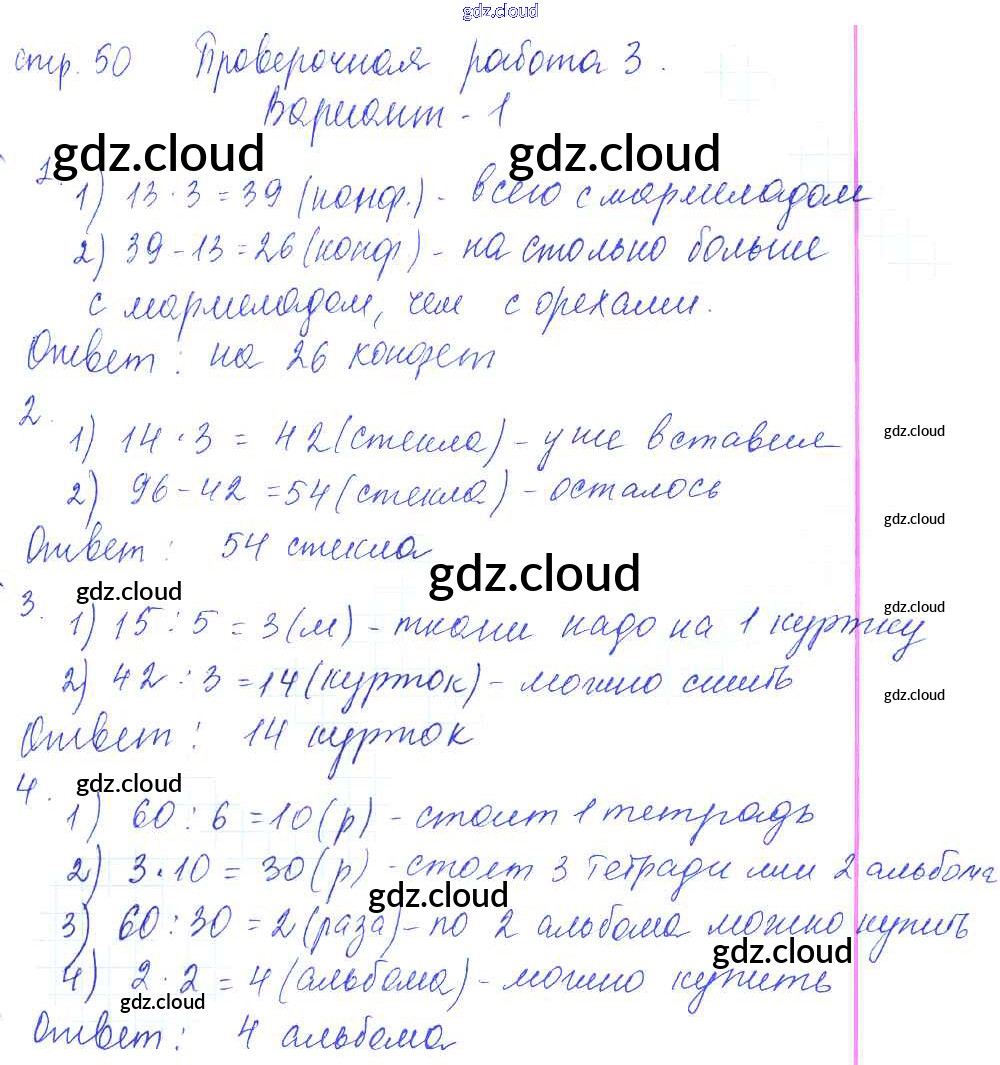 gdz.cloud
стр. 50 Проверочная работа 3.
Вариант - 1
gdz.cloud gdz.cloud
1. 1) 13 · 3 = 39 (конф.) - всего с мармеладом
2) 39 - 13 = 26 (конф) - на столько больше
с мармеладом, чем с орехами.
Ответ : на 26 конфет
2.
1) 14 · 3 = 42 (стекла) - уже вставили
gdz.cloud
2) 96 - 42 = 54 (стекла) - осталось
gdz.cloud
Ответ : 54 стекла
gdz.cloud
3. gdz.cloud
gdz.cloud
1) 15 : 5 = 3 (м) - ткани надо на 1 куртку
2) 42 : 3 = 14 (курток) - можно сшить
gdz.cloud
Ответ : 14 курток
4. gdz.cloud
1) 60 : 6 = 10 (р) - стоит 1 тетрадь
2) 3 · 10 = 30 (р) - стоят 3 тетради или 2 альбома
gdz.cloud
3) 60 : 30 = 2 (раза) - по 2 альбома можно купить
gdz.cloud
4) 2 · 2 = 4 (альбома) - можно купить
gdz.cloud
Ответ : 4 альбома